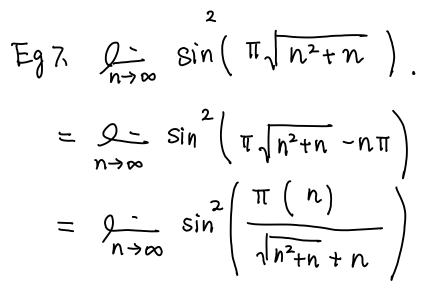 Eg 7. lim n→∞ sin²( π√(n²+n) ).
= lim n→∞ sin²( π√(n²+n) - nπ )
= lim n→∞ sin²( π(n) / (√(n²+n) + n) )